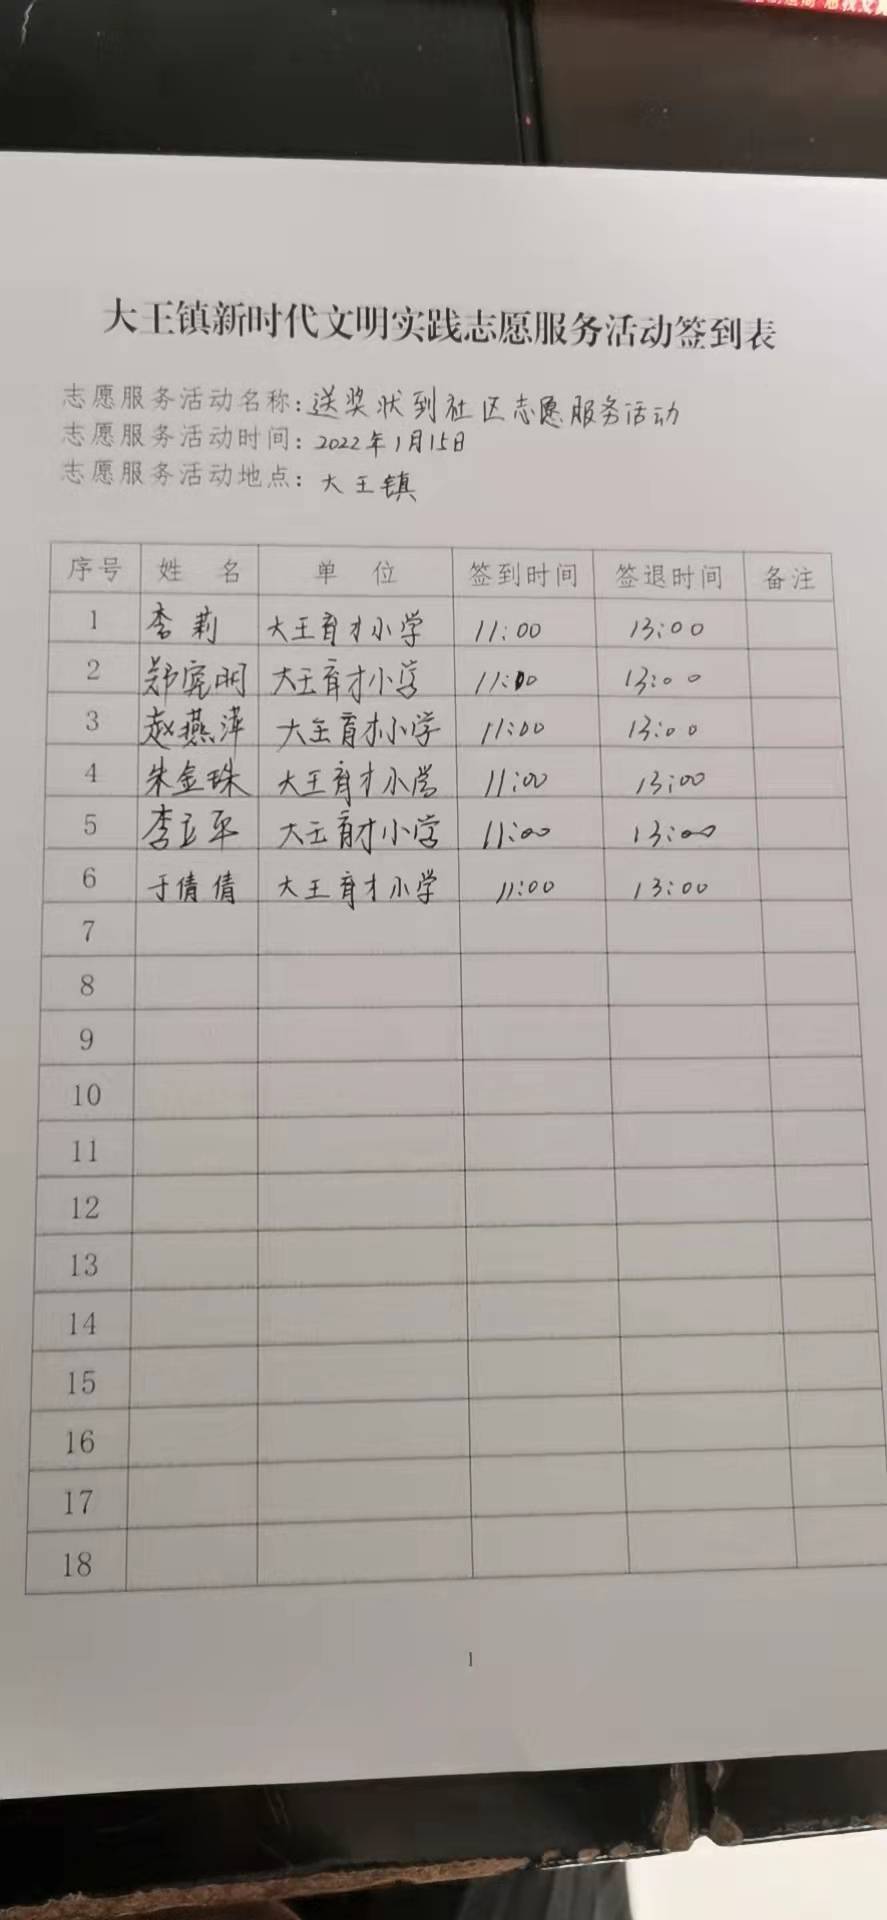 大王镇新时代文明实践志愿服务活动签到表
志愿服务活动名称：送奖状到社区志愿服务活动
志愿服务活动时间：2022年1月15日
志愿服务活动地点：大王镇
序号 姓 名 单 位 签到时间 签退时间 备注
1 李莉 大王育才小学 11:00 13:00
2 郑宪明 大王育才小学 11:00 13:00
3 赵燕萍 大王育才小学 11:00 13:00
4 朱金珠 大王育才小学 11:00 13:00
5 李立平 大王育才小学 11:00 13:00
6 于倩倩 大王育才小学 11:00 13:00
7
8
9
10
11
12
13
14
15
16
17
18
1